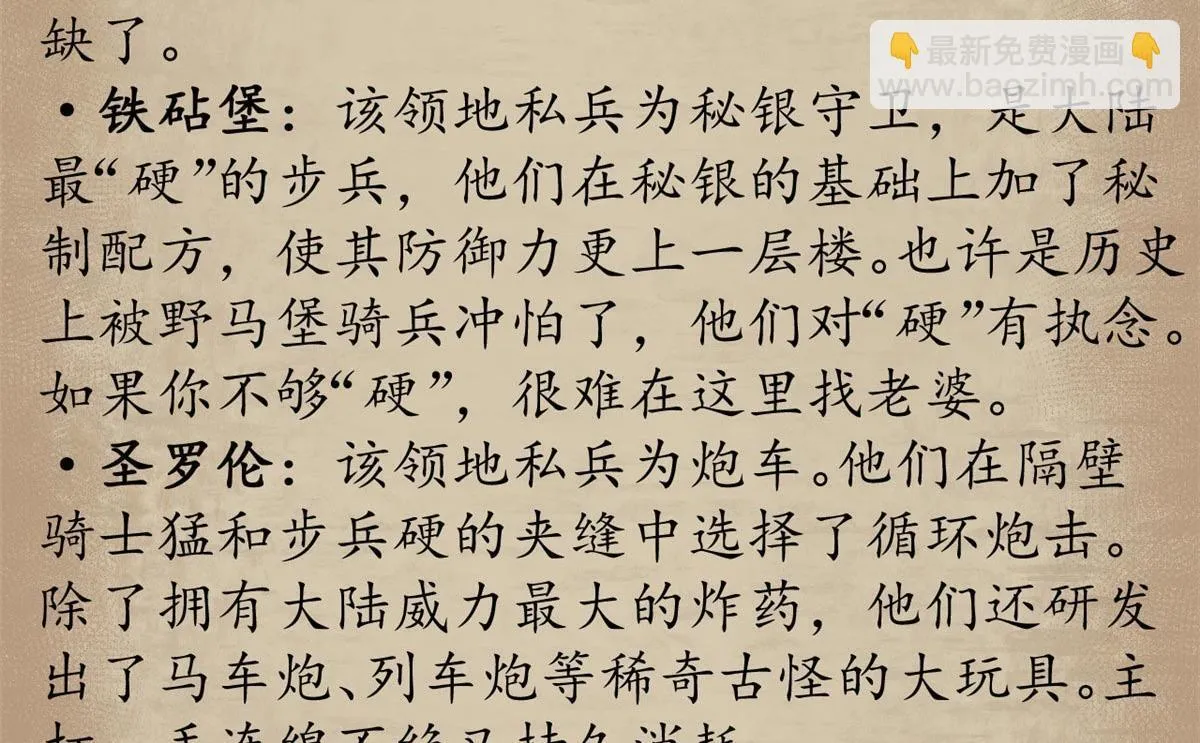 缺了。
👇最新免费漫画👇
www.baozimh.com
·铁砧堡：该领地私兵为秘银守卫，是大陆
最“硬”的步兵，他们在秘银的基础上加了秘
制配方，使其防御力更上一层楼。也许是历史
上被野马堡骑兵冲怕了，他们对“硬”有执念。
如果你不够“硬”，很难在这里找老婆。
·圣罗伦：该领地私兵为炮车。他们在隔壁
骑士猛和步兵硬的夹缝中选择了循环炮击。
除了拥有大陆威力最大的炸药，他们还研发
出了马车炮、列车炮等稀奇古怪的大玩具。主